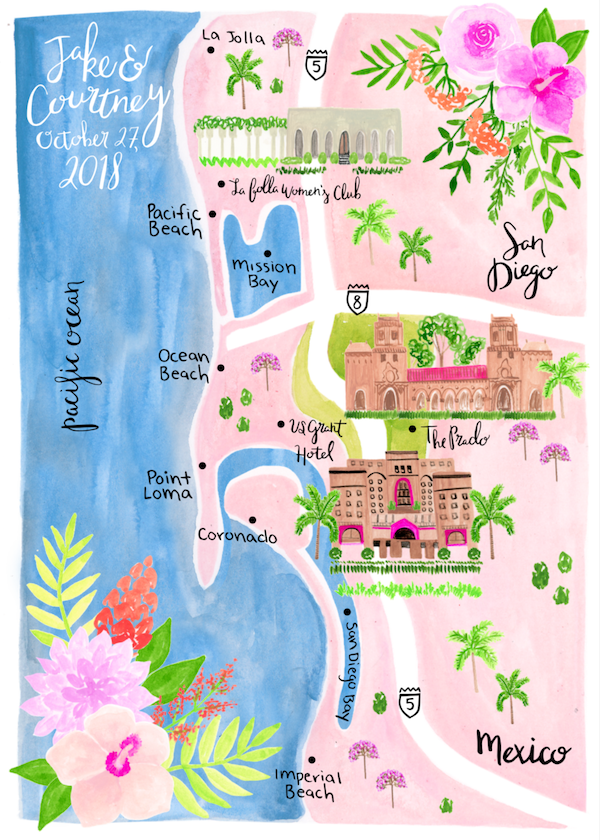 Jake &
Courtney
October 27,
2018
La Jolla
5
La Jolla Women's Club
Pacific
Beach
Mission
Bay
San
Diego
8
pacific ocean
Ocean
Beach
US Grant
Hotel
The Prado
Point
Loma
Coronado
San Diego Bay
5
Mexico
Imperial
Beach